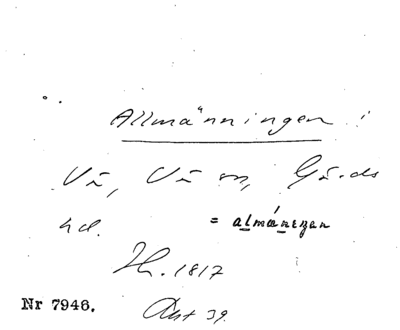 Allmänningen
Vä, Vä sn, Gärds
hd. = almánezen
Hr. 1817
Nr 7946. Ant 39